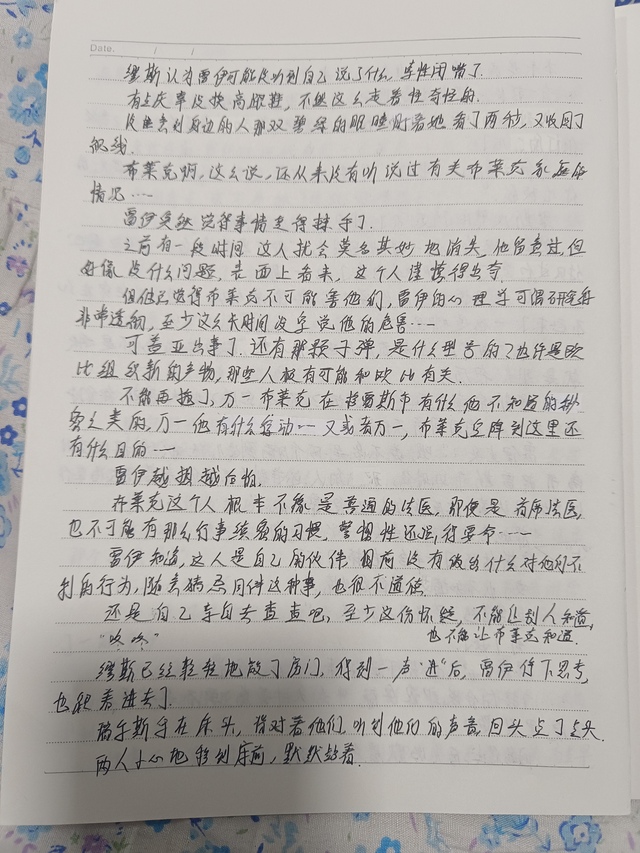 Date.
缪斯认为雷伊可能没听到自己说了什么,索性闭嘴了.
有点庆幸没换高跟鞋,不然这么走着怪奇怪的.
身边的人那双碧绿的眼睛盯着她看了两秒,又收回了
视线.
布莱克啊,这么说,还从来没有听说过有关布莱克家庭的
情况……
雷伊突然觉得事情变得棘手了.
之前有一段时间这人就会莫名其妙地消失,他留意过,但
好像没什么问题,表面上看来,这个人谨慎得出奇
但他总觉得布莱克不可能害他们,雷伊的心理学可谓研究得
非常透彻,至少这么长时间没察觉他的危害……
可盖亚出事了.还有那颗子弹,是什么型号的?也许是欧
比组织新的产物,那些人极有可能和欧比有关.
不能再拖了,万一布莱克在拉雷斯市有什么他不知道的秘
密之类的,万一他有什么行动……又或者万一,布莱克空降到这里还
有什么目的……
雷伊越想越后怕.
布莱克这个人根本不像是普通的法医,即使是首席法医,
也不可能有那么行事缜密的习惯,警惕性还强得要命……
雷伊知道,这人是自己的伙伴,目前没有做出什么对他们不
利的行为,随意猜忌同伴这种事,也很不道德.
还是自己亲自去查查吧,至少这份怀疑,不能让别人知道,
也不能让布莱克知道.
"咚咚"
缪斯已经轻轻地敲了房门,得到一声"进"后,雷伊停下思考,
也跟着进去了.
瑞尔斯坐在床头,背对着他们,听到他们的声音,回头点了点头.
两人小心地移到床前,默默站着.